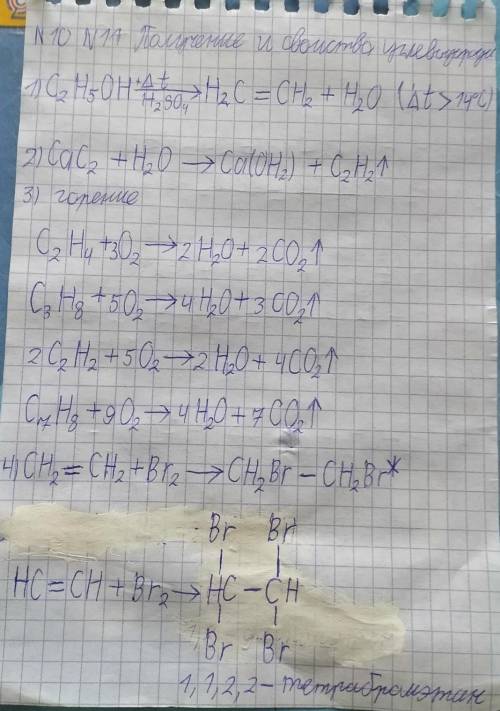 N10 N11 Получение и свойства углеводороде
1) C₂H5OH +Δt H₂SO₄ → H₂C = CH₂ + H₂O (Δt > 14°C)
2) CaC₂ + H₂O → Ca(OH₂) + C₂H₂↑
3) горение
C₂H₄ + 3O₂ → 2H₂O + 2CO₂↑
C₃H₈ + 5O₂ → 4H₂O + 3CO₂↑
2C₂H₂ + 5O₂ → 2H₂O + 4CO₂↑
C₇H₈ + 9O₂ → 4H₂O + 7CO₂↑
4) CH₂ = CH₂ + Br₂ → CH₂Br – CH₂Br*
Br Br
HC = CH + Br₂ → HC – CH
Br Br
1,1,2,2 – тетрабромэтан